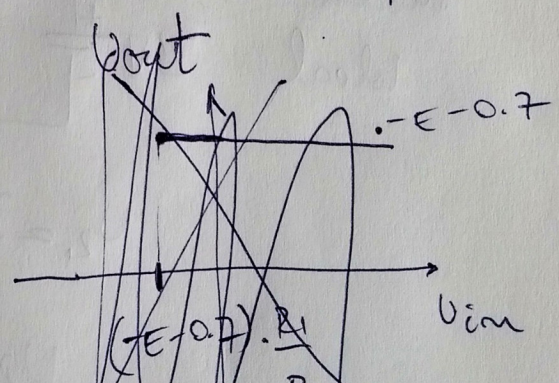 Vout
-E-0.7
Vin
(-E-0.7). R1